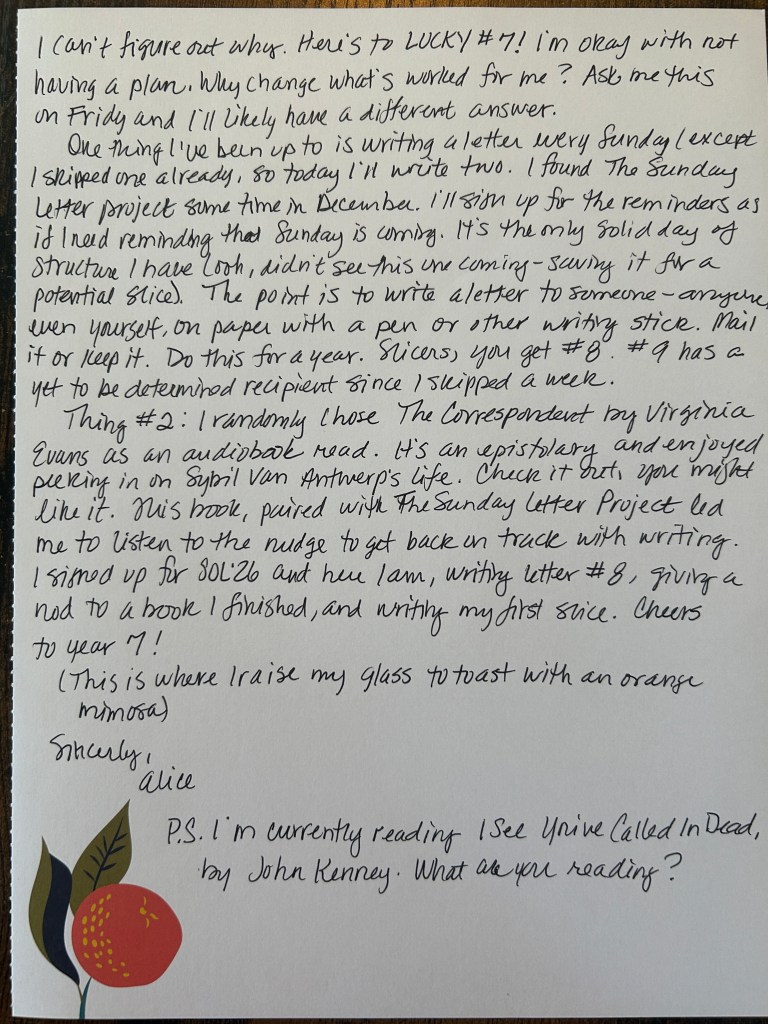 I can't figure out why. Here's to LUCKY #7! I'm okay with not
having a plan. Why change what's worked for me? Ask me this
on Fridy and I'll likely have a different answer.
One thing I've been up to is writing a letter every Sunday (except
I skipped one already, so today I'll write two. I found The Sunday
Letter project some time in December. I'll sign up for the reminders as
if I need reminding that Sunday is coming. It's the only solid day of
structure I have (ooh, didn't see this one coming - saving it for a
potential slice). The point is to write a letter to someone - anyone,
even yourself, on paper with a pen or other writing stick. Mail
it or keep it. Do this for a year. Slicers, you get #8. #9 has a
yet to be determined recipient since I skipped a week.
Thing #2: I randomly chose The Correspondent by Virginia
Evans as an audiobook read. It's an epistolary and enjoyed
peeking in on Sybil Van Antwerp's life. Check it out, you might
like it. This book, paired with The Sunday Letter Project led
me to listen to the nudge to get back on track with writing.
I signed up for SOL'26 and here I am, writing letter #8, giving a
nod to a book I finished, and writing my first slice. Cheers
to year 7!
(This is where I raise my glass to toast with an orange
mimosa)
Sincerly,
Alice
P.S. I'm currently reading I See You've Called In Dead,
by John Kenney. What are you reading?